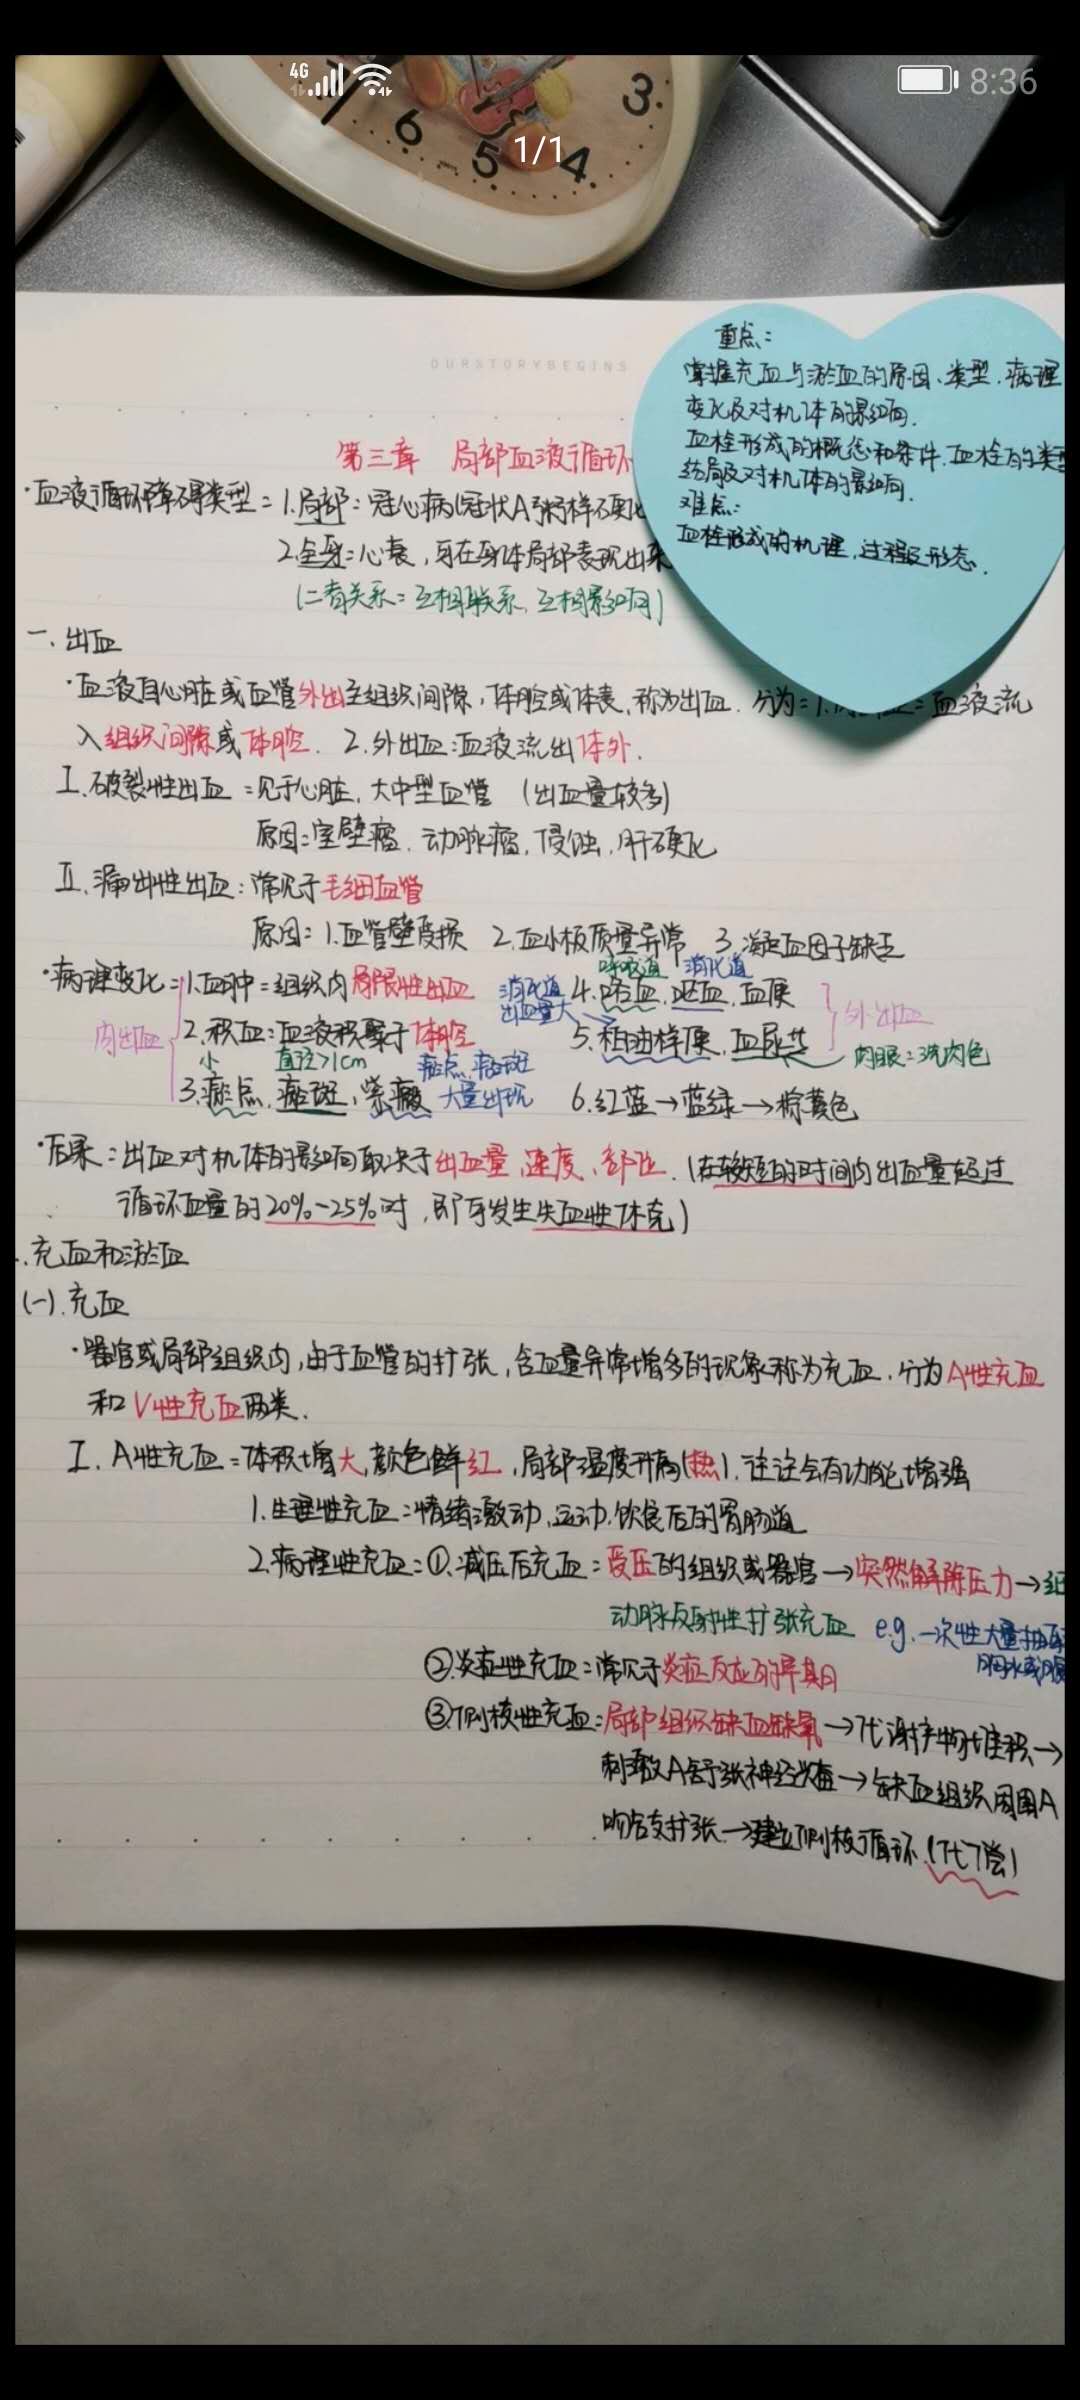 4G
8:36
1/1
6
5
4
3
OURSTORYBEGINS
重点:
掌握充血与淤血的原因、类型、病理
变化及对机体的影响.
血栓形成的概念和条件.血栓的类型
结局及对机体的影响.
难点:
血栓形成的机理,过程及形态.
第三章 局部血液循环
·血液循环障碍类型:1.局部:冠心病(冠状A粥样硬化
2.全身:心衰,可在身体局部表现出来
(二者关系:互相联系,互相影响)
一.出血
·血液自心脏或血管外出至组织间隙,体腔或体表,称为出血.分为:1.内出血:血液流
入组织间隙或体腔. 2.外出血:血液流出体外.
I.破裂性出血:见于心脏,大中型血管 (出血量较多)
原因:室壁瘤.动脉瘤,侵蚀,肝硬化
II.漏出性出血:常见于毛细血管
原因:1.血管壁受损 2.血小板质量异常 3.凝血因子缺乏
呼吸道 消化道
·病理变化:1.血肿:组织内局限性出血 消化道 4.咯血,呕血,血便
出血量大
内出血 2.积血:血液积聚于体腔 5.柏油样便,血尿 外出血
小 直径>1cm 瘀点,瘀斑 肉眼:洗肉色
3.瘀点,瘀斑,紫癜 大量出现 6.红蓝→蓝绿→棕黄色
·后果:出血对机体的影响取决于出血量、速度、部位.(在较短的时间内出血量超过
循环血量的20%-25%时,即可发生失血性休克)
.充血和淤血
(一).充血
·器官或局部组织内,由于血管的扩张,含血量异常增多的现象称为充血.分为A性充血
和V性充血两类.
I.A性充血:体积增大,颜色鲜红,局部温度升高(热),往往会有功能增强
1.生理性充血:情绪激动、运动.饮食后的胃肠道
2.病理性充血:①.减压后充血:受压的组织或器官→突然解除压力→细
动脉反射性扩张充血 e.g.一次性大量抽取
胸水或腹
②.炎症性充血:常见于炎症反应的早期
③.侧枝性充血:局部组织缺血缺氧→代谢产物堆积→
刺激A舒张神经兴奋→缺血组织周围A
吻合支扩张→建立侧枝循环.(代偿)